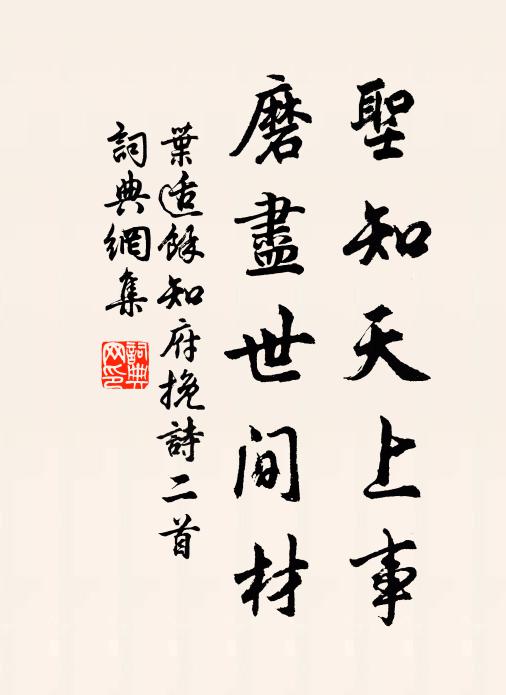 聖知天上事
磨盡世間材
葉适餘知府挽詩二首
詞典網集
詞典
网印